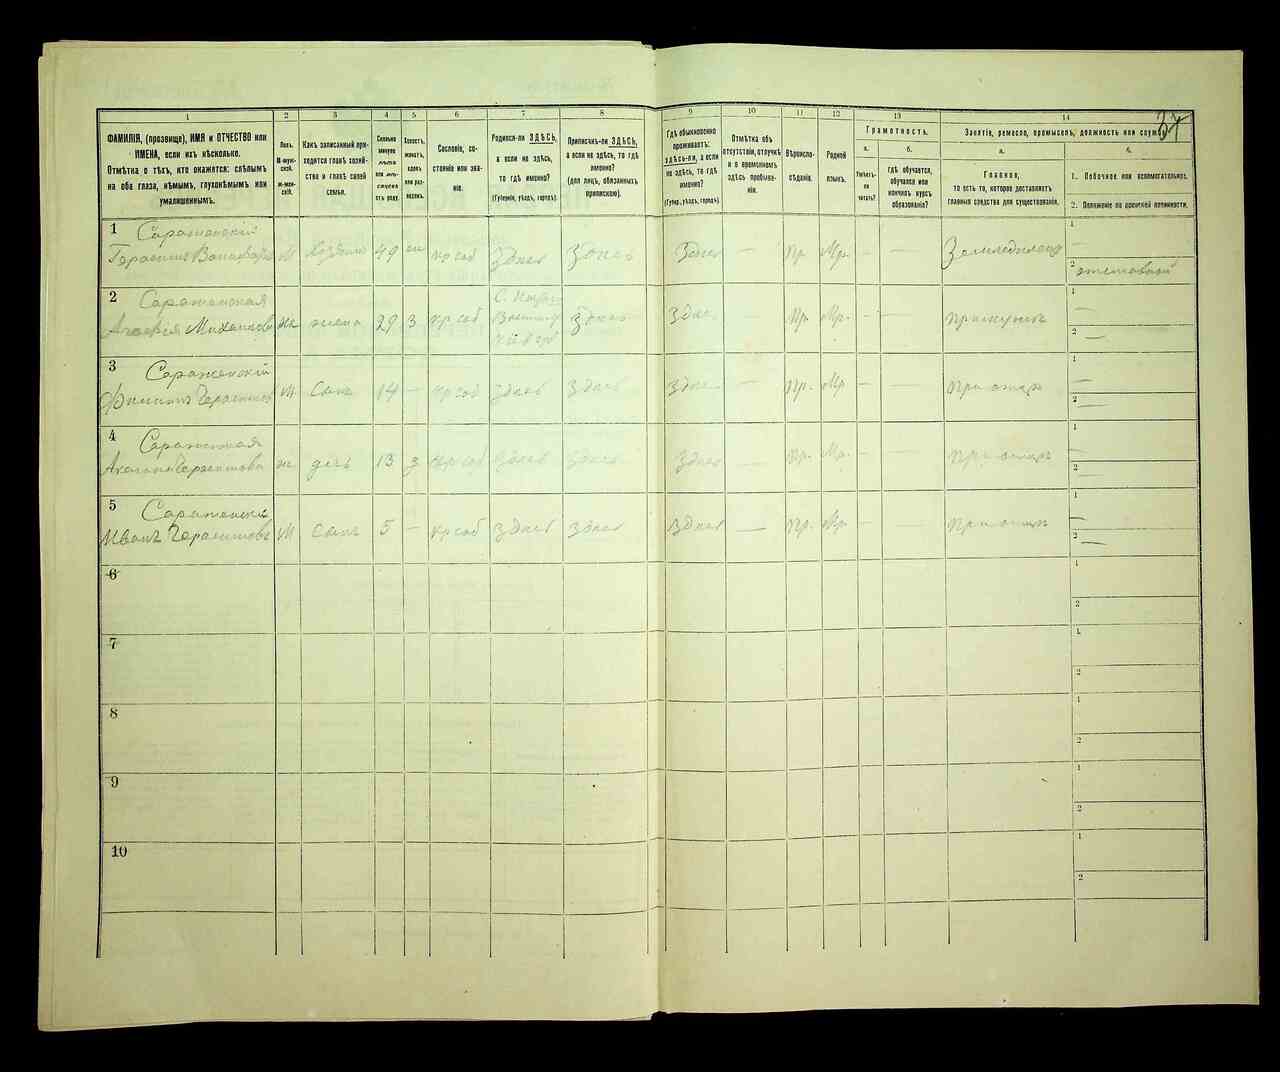 37
1
2
3
4
5
6
7
8
9
10
11
12
13
14
ФАМИЛІЯ, (прозвище), ИМЯ и ОТЧЕСТВО или
ИМЕНА, если ихъ нѣсколько.
Отмѣтка о тѣхъ, кто окажется: слѣпымъ
на оба глаза, нѣмымъ, глухонѣмымъ или
умалишеннымъ.
Полъ.
М-муж-
ской.
Ж-жен-
скій.
Какъ записанный при-
ходится главѣ хозяй-
ства и главѣ своей
семьи.
Сколько
минуло
лѣтъ
или мѣ-
сяцевъ
отъ роду.
Холостъ,
женатъ,
вдовъ
или раз-
веденъ.
Сословіе, со-
стояніе или зва-
ніе.
Родился-ли ЗДѢСЬ,
а если не здѣсь,
то гдѣ именно?
(Губернія, уѣздъ, городъ).
Приписанъ-ли ЗДѢСЬ,
а если не здѣсь, то гдѣ
именно?
(для лицъ, обязанныхъ
припискою).
Гдѣ обыкновенно
проживаетъ:
здѣсь-ли, а если
не здѣсь, то гдѣ
именно?
(Губер., уѣздъ, городъ).
Отмѣтка объ
отсутствіи, отлучкѣ
и о временномъ
здѣсь пребыва-
ніи.
Вѣроиспо-
вѣданіе.
Родной
языкъ.
Грамотность.
а.
Умѣетъ-
ли
читать?
б.
гдѣ обучается,
обучался или
кончилъ курсъ
образованія?
Занятіе, ремесло, промыселъ, должность или служба.
а.
Главное,
то есть то, которое доставляетъ
главныя средства для существованія.
б.
1. Побочное или вспомогательное.
2. Положеніе по воинской повинности.
1
М
49
кр соб
Здѣсь
Здѣсь
Здѣсь
—
Пр.
Мр.
—
—
1
—
2
2
Михайлова
ж
жена
29
З
кр соб
Здѣсь
Здѣсь
—
Пр.
Мр.
—
—
1
2 —
3
Филипъ Герасимов
М
сынъ
14
—
кр соб
Здѣсь
Здѣсь
Здѣсь
—
Пр.
Мр
—
—
При отцѣ
1
—
2 —
4
ж
дочь
13
З
кр соб
Здѣсь
Здѣсь
Здѣсь
—
Пр.
Мр.
—
—
При отцѣ
1
—
2 —
5
Иванъ Герасимовъ
М
сынъ
5
—
кр соб
Здѣсь
Здѣсь
Здѣсь
—
Пр.
Мр.
—
—
При отцѣ
1
—
2 —
6
1
2
7
1
2
8
1
2
9
1
2
10
1
2